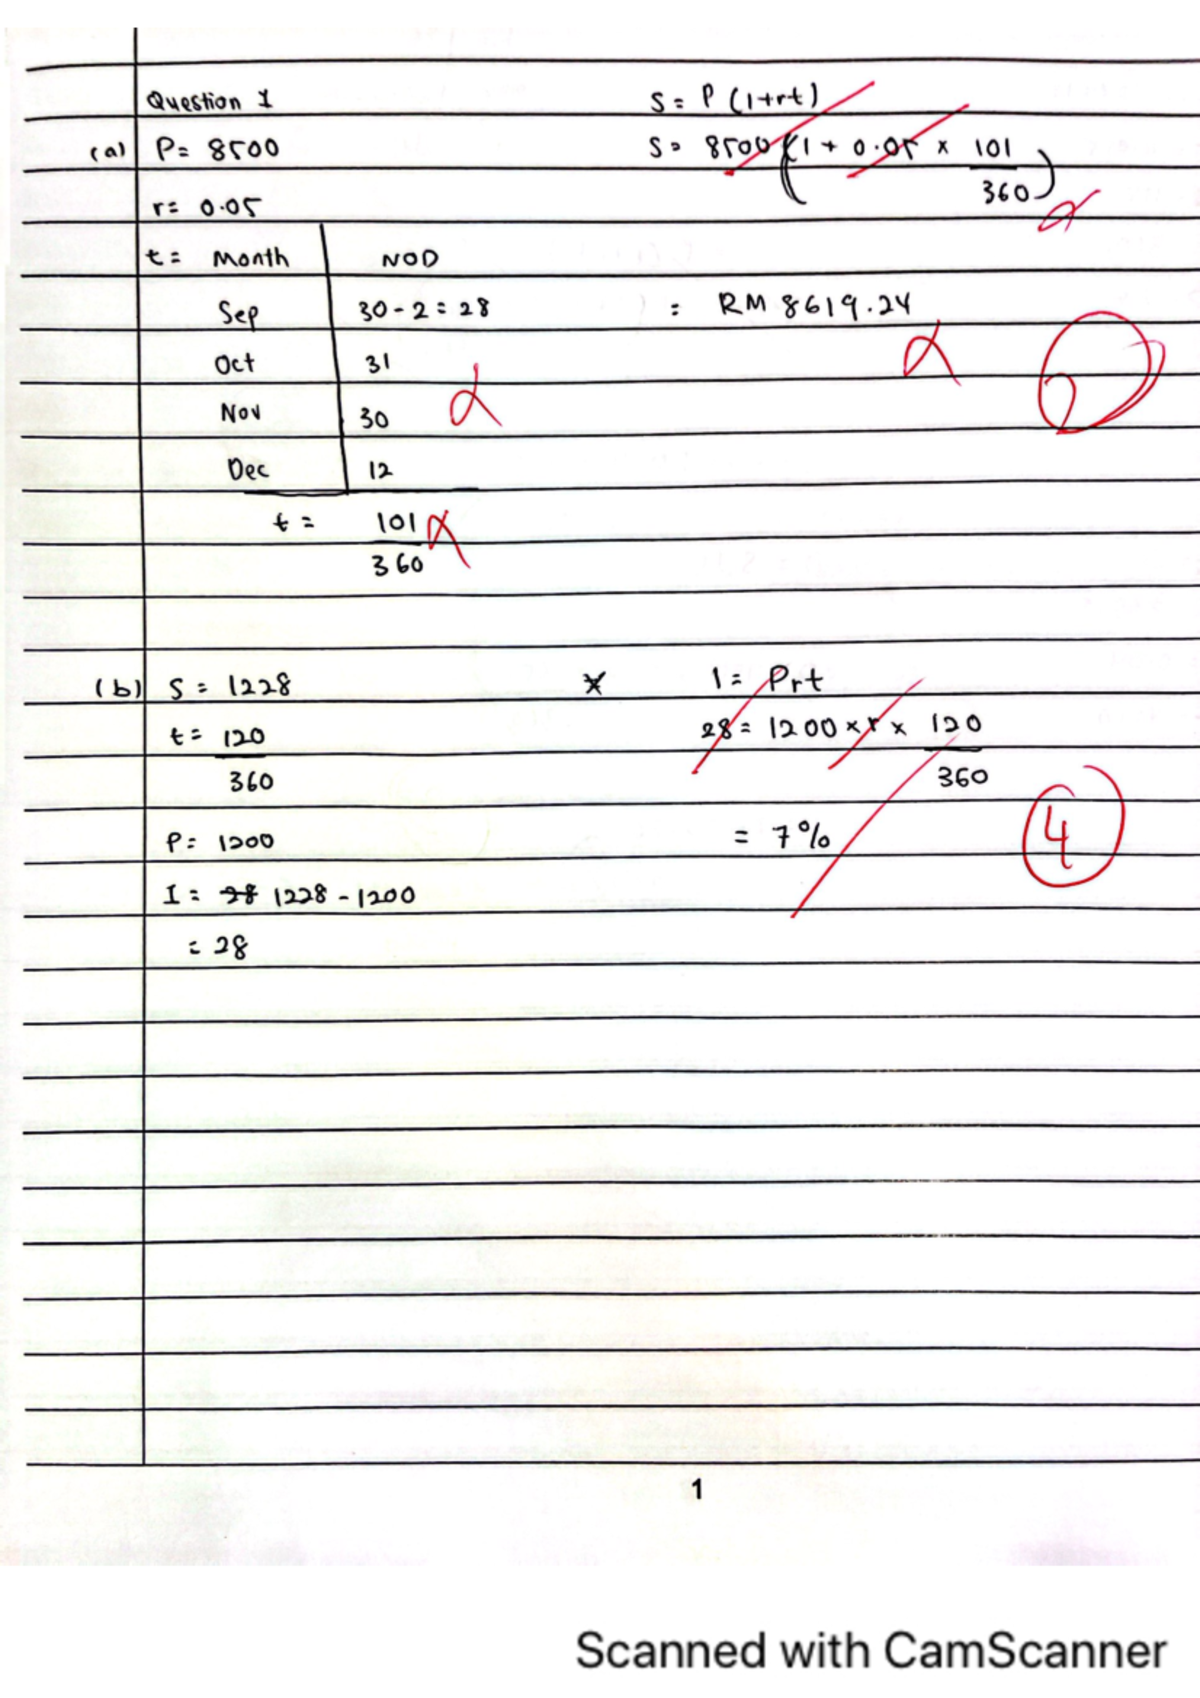 Question 1
(a) P = 8500
r = 0.05
t = Month NOD
Sep 30 - 2 = 28
Oct 31
Nov 30
Dec 12
t = 101
360
S = P (1+rt)
S = 8500 (1 + 0.05 x 101
360)
= RM 8619.24
2
(b) S = 1228
t = 120
360
P = 1200
I = 28 1228 - 1200
= 28
* I = Prt
28 = 1200 x r x 120
360
= 7%
4
1
Scanned with CamScanner